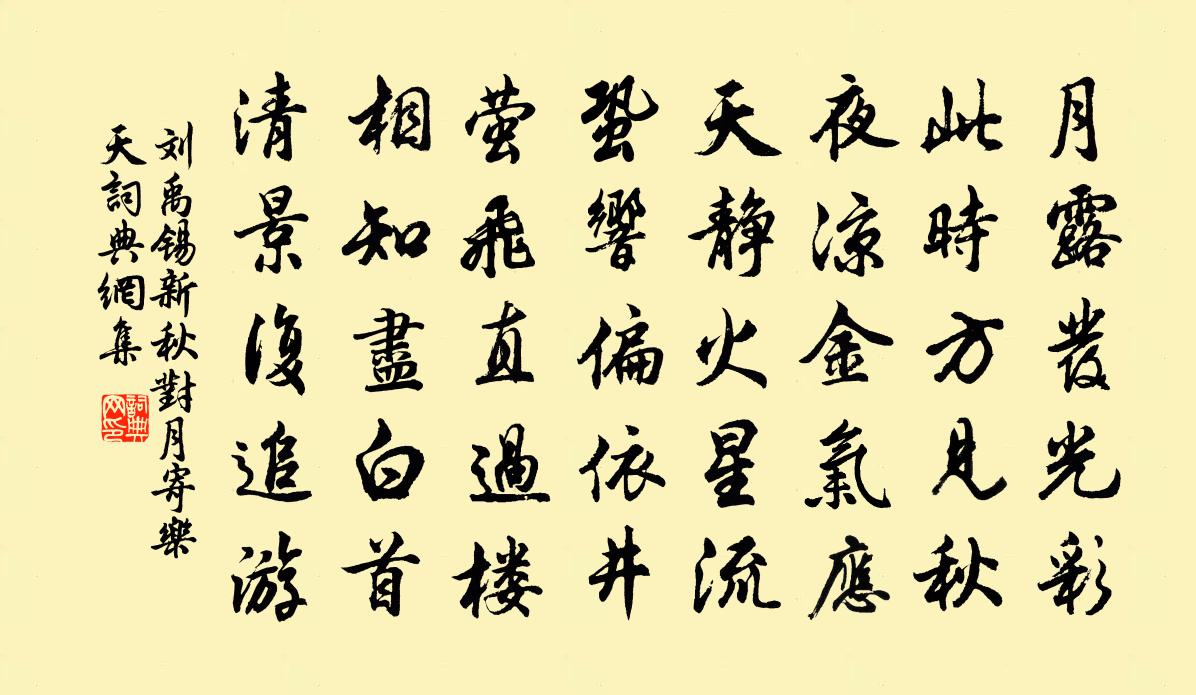 月露發光彩
此時方見秋
夜涼金氣應
天静火星流
蛩響偏依井
萤飛直過楼
相知盡白首
清景復追游
刘禹锡新秋對月寄樂
天詞典網集
詞典
网印